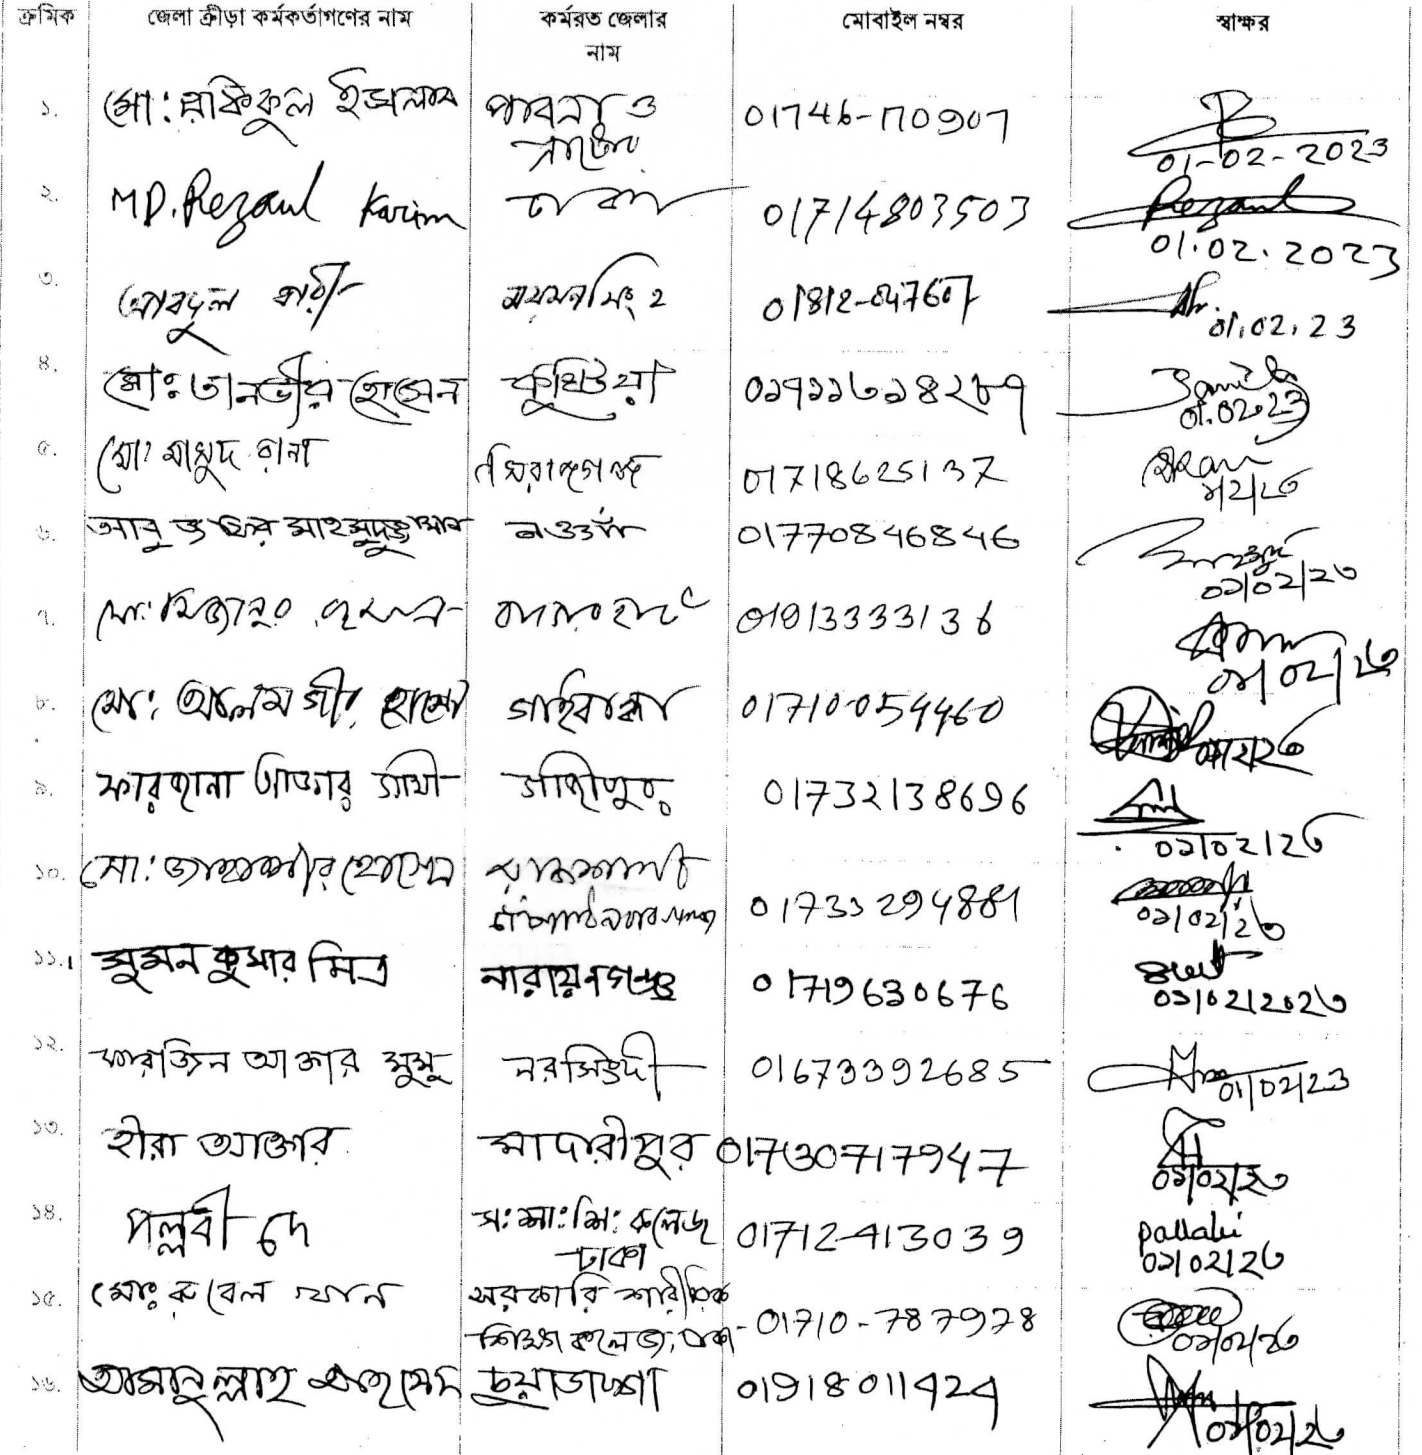 ক্রমিক জেলা ক্রীড়া কর্মকর্তাগণের নাম কর্মরত জেলার নাম মোবাইল নম্বর স্বাক্ষর
১. মো: রফিকুল ইসলাম পাবনা ও নাটোর 01746-170907 01-02-2023
২. MD. Rezaul Karim ঢাকা 01714803503 Rezaul 01.02.2023
৩. আবদুল বারী ময়মনসিংহ 01812-047607 01.02.23
৪. মোঃ তানভীর হোসেন কুষ্টিয়া ০১৭১১৬১৪২৮৭ 01.02.23
৫. মো: মাসুদ রানা সিরাজগঞ্জ 01718625137 ১/২/২৩
৬. আবু জাফর মাহমুদুজ্জামান নওগাঁ 01770846846 ০১/০২/২৩
৭. মো: মিজানুর রহমান বাগেরহাট 01913333136 ০১/০২/২৩
৮. মো: আলমগীর হোসেন গাইবান্ধা 01710-054460
৯. ফারহানা আক্তার সাথী গাজীপুর 01732138696 ০১/০২/২৩
১০. মো: জাহাঙ্গীর হোসেন রাজশাহী চাঁপাইনবাবগঞ্জ 01733294881 ০১/০২/২৩
১১. সুমন কুমার মিত্র নারায়নগঞ্জ 01719630676 ০১/০২/২০২৩
১২. ফারজিন আক্তার সুমু নরসিংদী 01673392685 01/02/23
১৩. হীরা আক্তার মাদারীপুর 01730717947 ০১/০২/২৩
১৪. পল্লবী দে স: শা: শি: কলেজ ঢাকা 01712-413039 pallabi ০১/০২/২৩
১৫. মোঃ রুবেল খান সরকারি শারীরিক শিক্ষা কলেজ, ঢাকা 01710-787978 ০১/০২/২৩
১৬. আমানুল্লাহ আহমেদ চুয়াডাঙ্গা 01918011424 ০১/০২/২৩